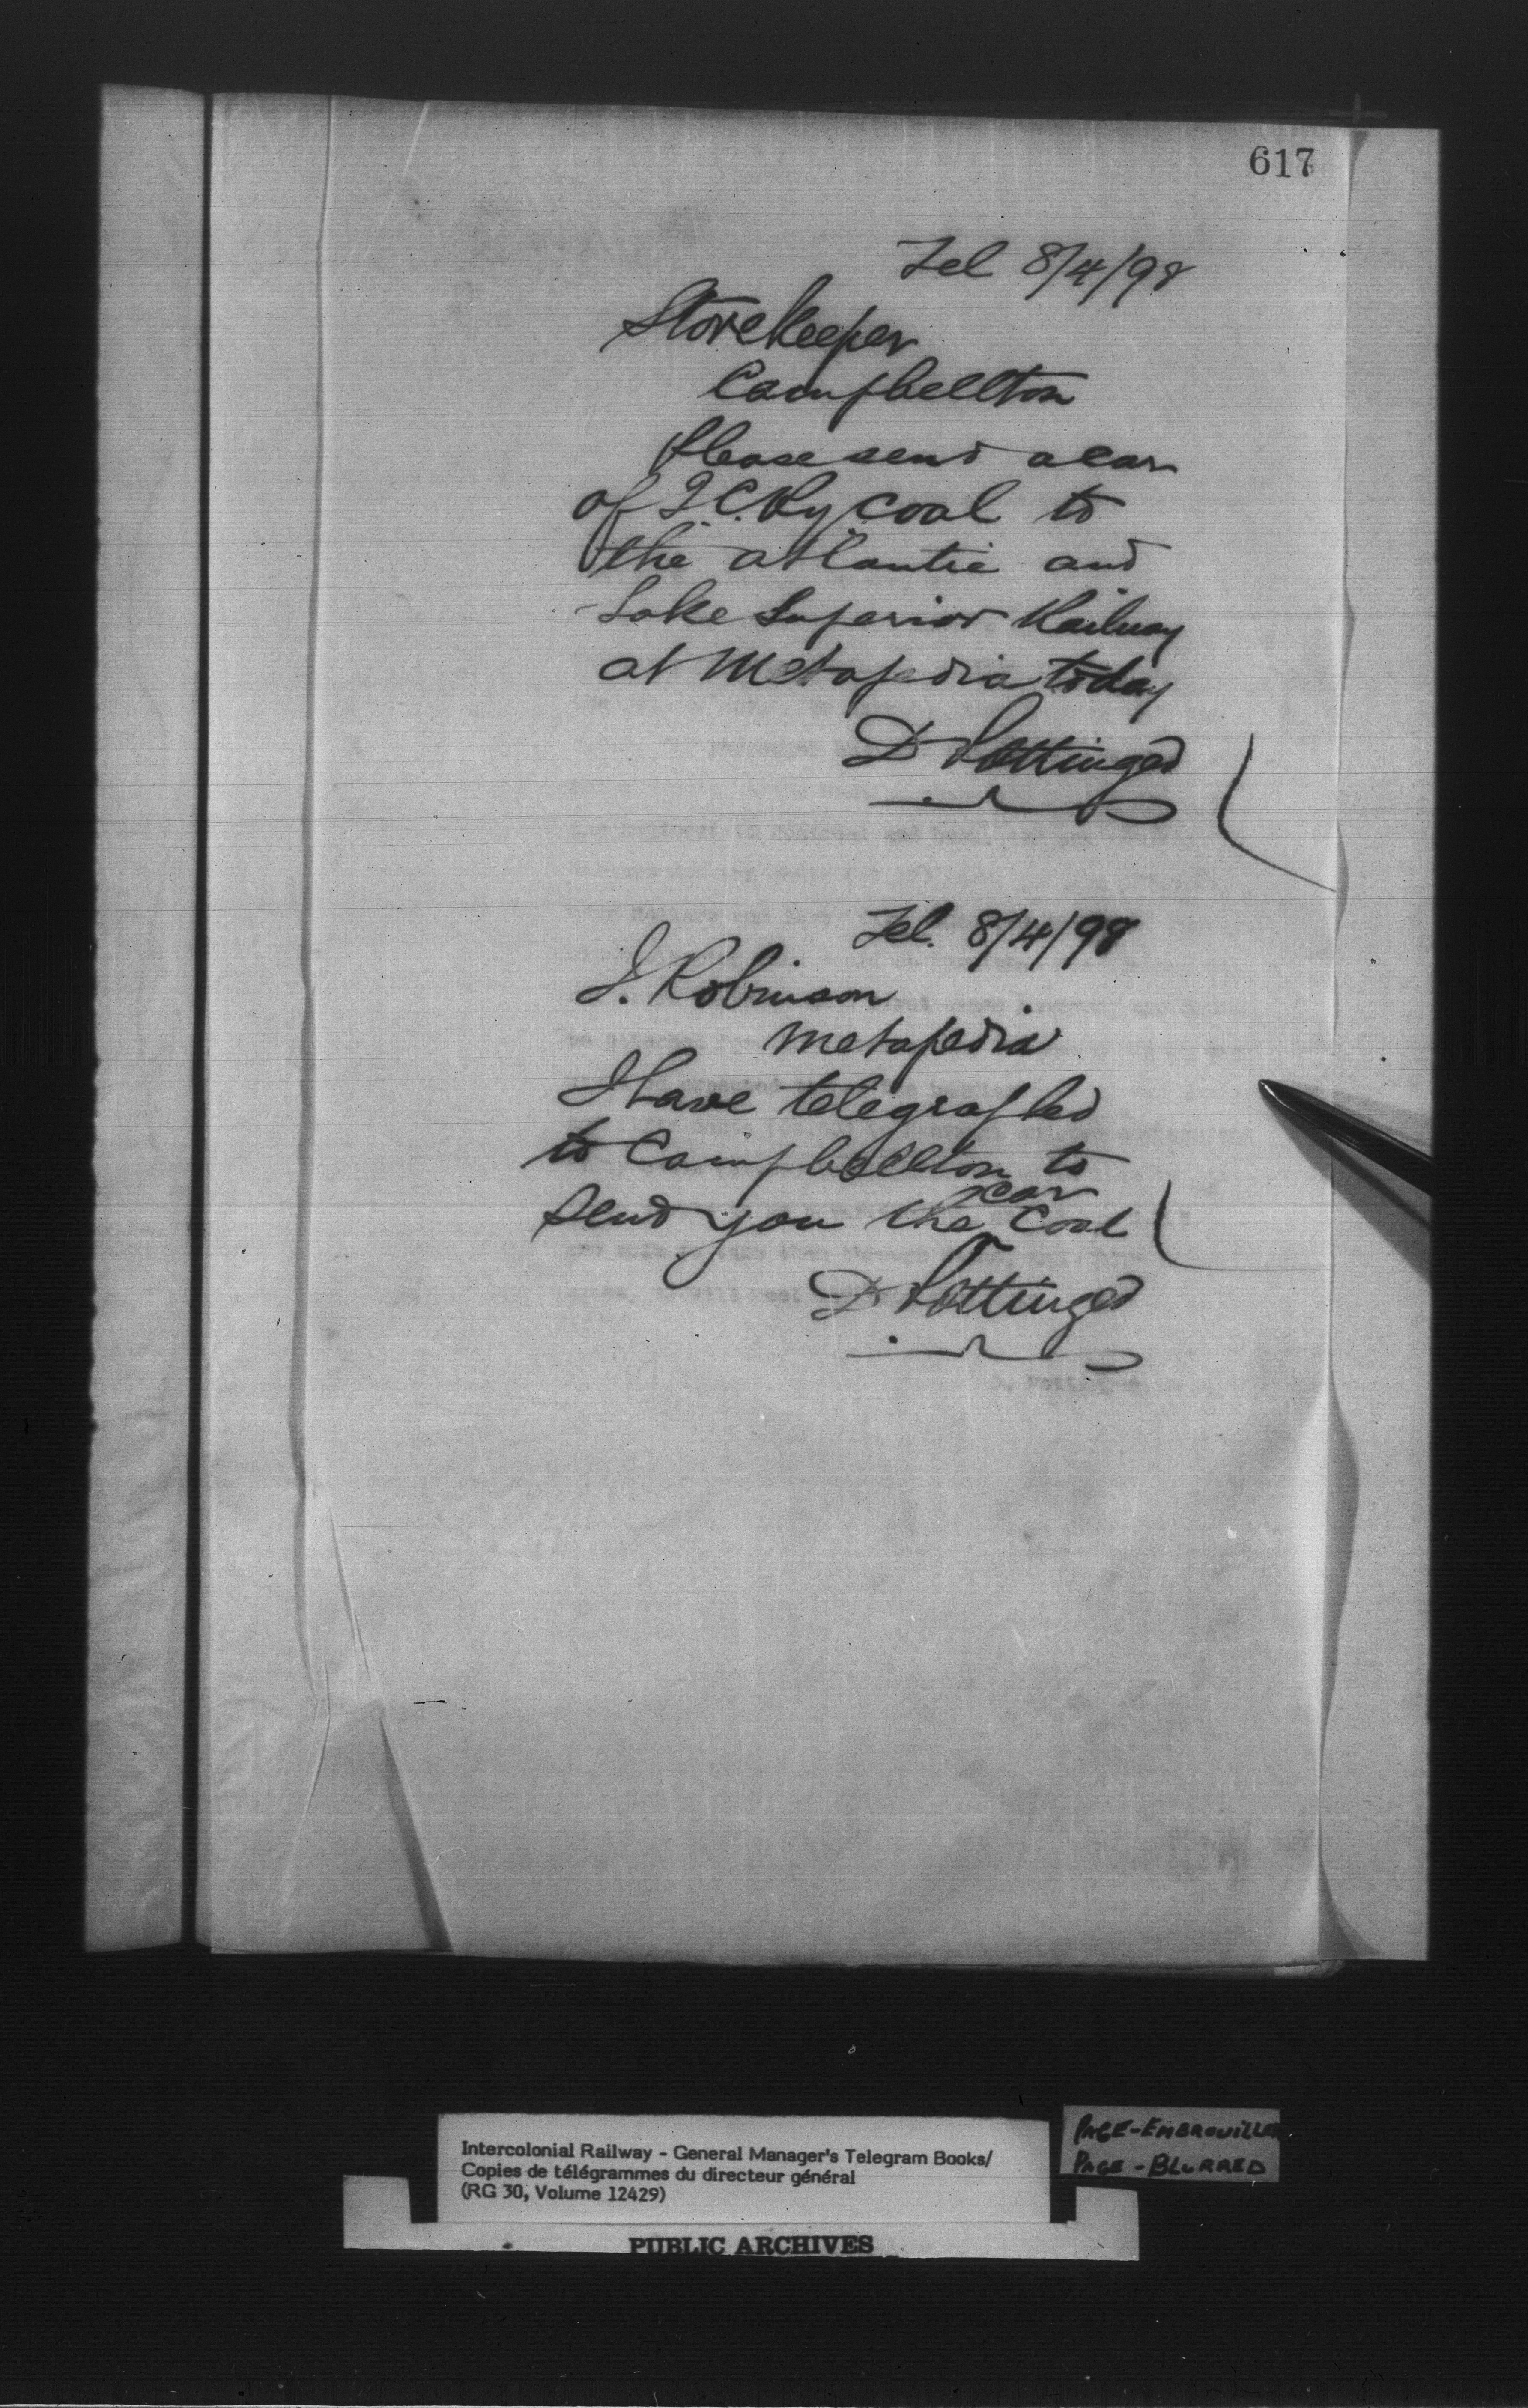 617
Tel 8/4/98
Storekeeper
Campbellton
Please send a car
of I.C.Ry coal to
the atlantic and
Lake Superior Railway
at Metapedia today
D Pottinger
Tel. 8/4/98
I. Robinson
Metapedia
I have telegraphed
to Campbellton to
send you the car coal
D Pottinger
Intercolonial Railway - General Manager's Telegram Books/
Copies de télégrammes du directeur général
(RG 30, Volume 12429)
PUBLIC ARCHIVES
PAGE-EMBROUILLEE
PAGE-BLURRED